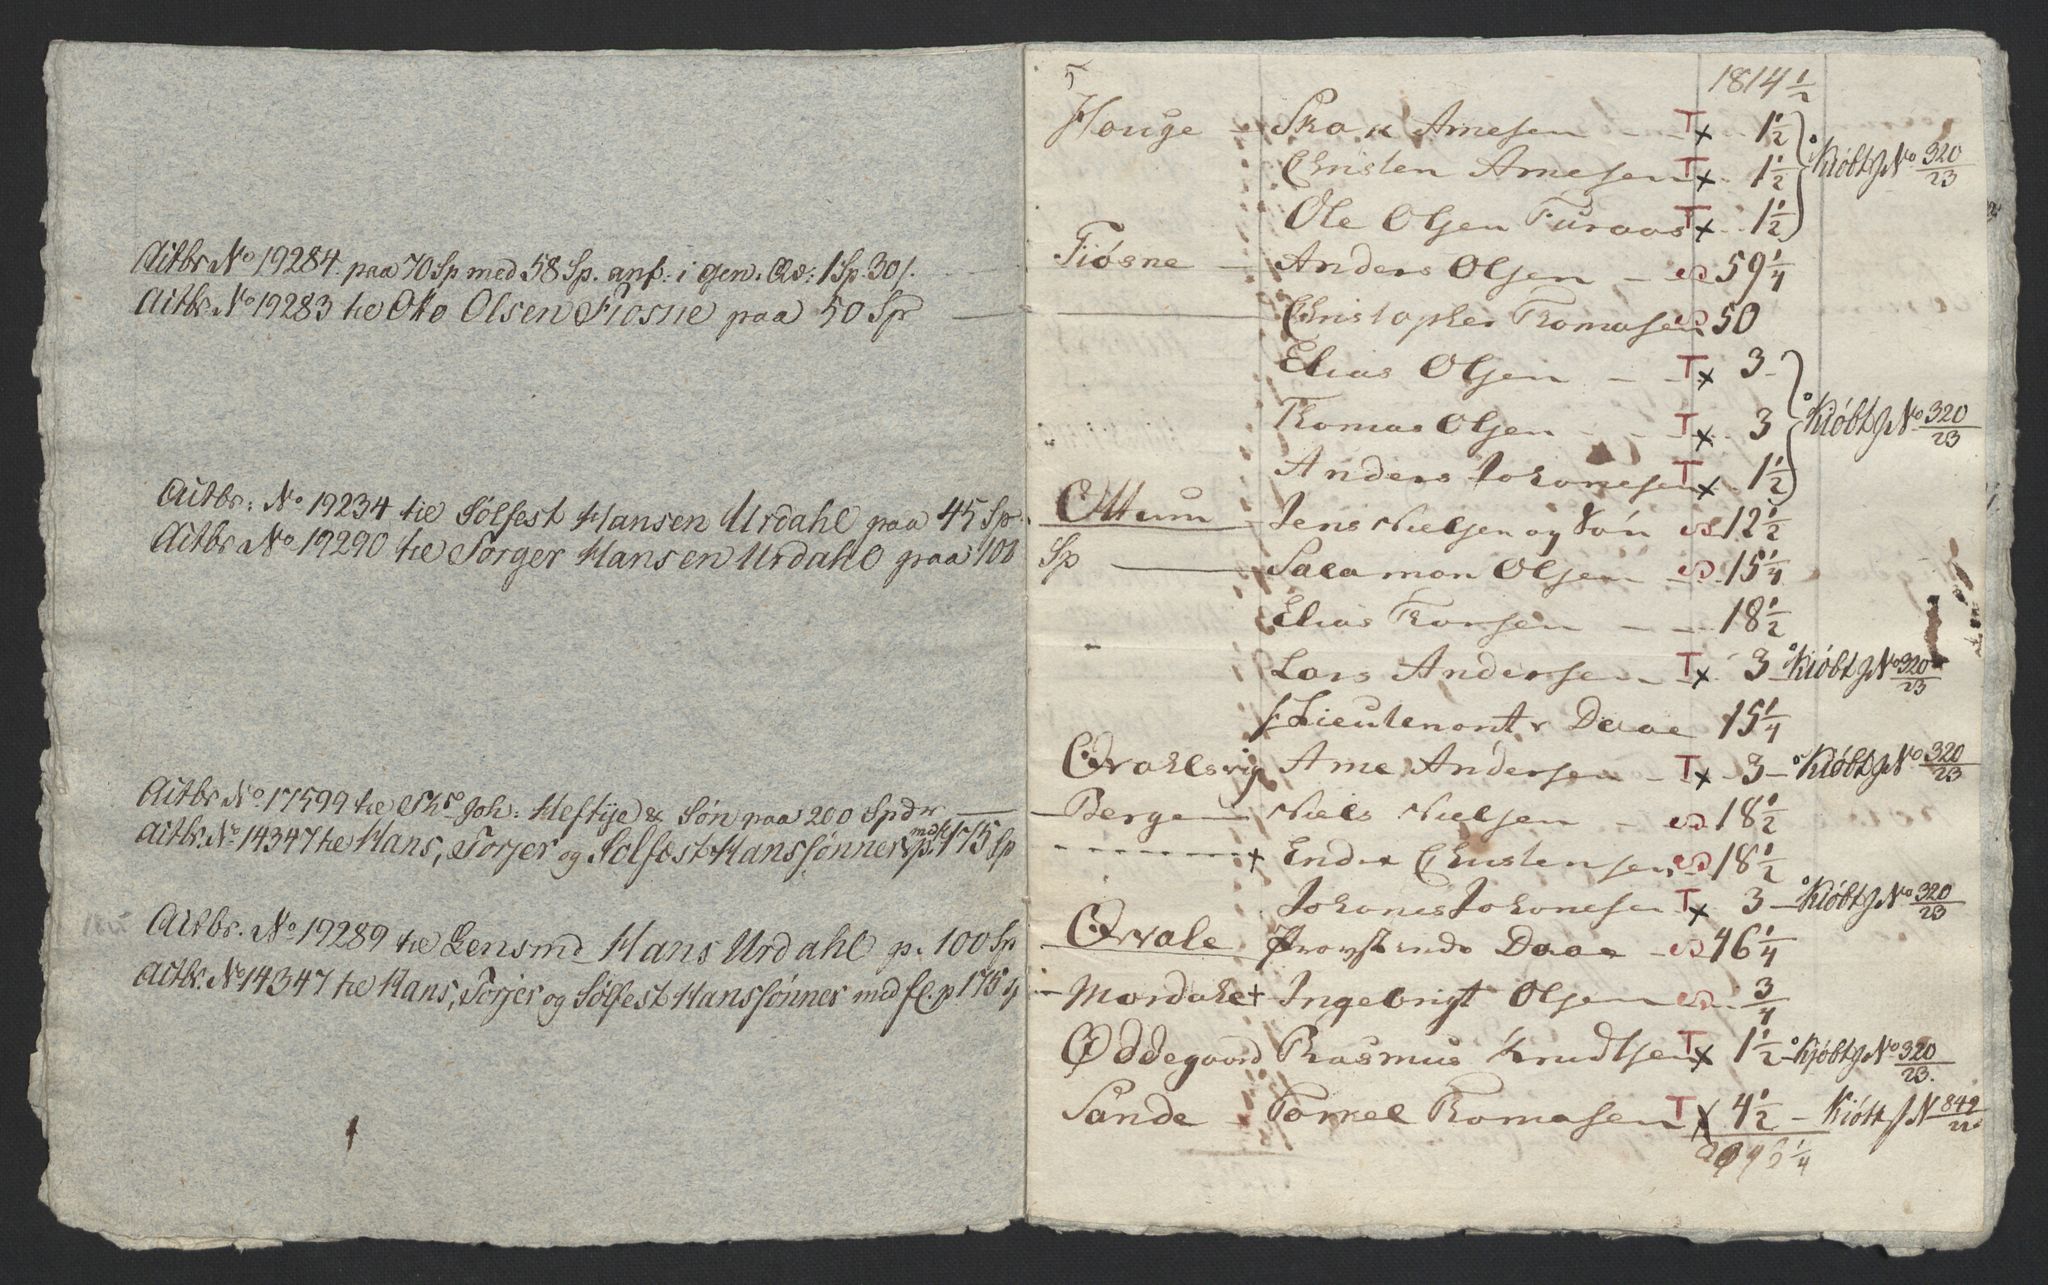 Actbr No 19284 paa 70 Sp med 58 Sp. anf: i gen. Qv: 1 Sp. 30 s.
Actbr. No 19283 til Ole Olsen Fiosne paa 50 Sp
Actbr: No 19234 til Sölfest Hansen Urdahl paa 45 Sp.
Actbr No 19290 til Torger Hansen Urdahl paa 100
Actbr No 17599 til Joh: Heftye & Søn paa 200 Spdr
Actbr. No 14347 til Hans, Torjer og Solfest Hanssønner 175 Sp
Actbr. No 19289 til Lensmd Hans Urdahl p. 100 Sp
Actbr. No 14347 til Hans, Torjer og Sölfest Hanssønner med fl. p 175 Sp
5 1814 1/2
Houge - Arnesen - - T x 1 1/2
Christen Arnesen T x 1 1/2 Kiöbt J No 320/23
Ole Olsen Furaas T x 1 1/2
Fiösne - Anders Olsen - 59 1/4
Christopher Thomasen 50
Elias Olsen - - T x 3
Thomas Olsen - - T x 3 Kiöbt J No 320/23
Anders Johanesen T x 1 1/2
Ottum - Jens Nielsen og Sön 12 1/2
Sp - Salamon Olsen - 15 1/4
Elias Thorsen - - 18 1/2
Lars Andersen - T x 3 - Kiöbt J No 320/23
Lieutenant Daae 15 1/4
Qvahlsvig Arne Andersen - T x 3 - Kiöbt J No 320/23
Berge - Niels Nielsen - 18 1/2
+ Endre Christensen 18 1/2
Johanes Johanesen T x 3 - Kiöbt J No 320/23
Qvale Daae - 46 1/4
Mordahl + Ingebrigt Olsen 3/4
Øddegaard Rasmus Knudsen T x 1 1/2 - Kjöbt J No 320/23.
Sande - Torkel Thomasen T x 4 1/2 - Kiöbt J N 849